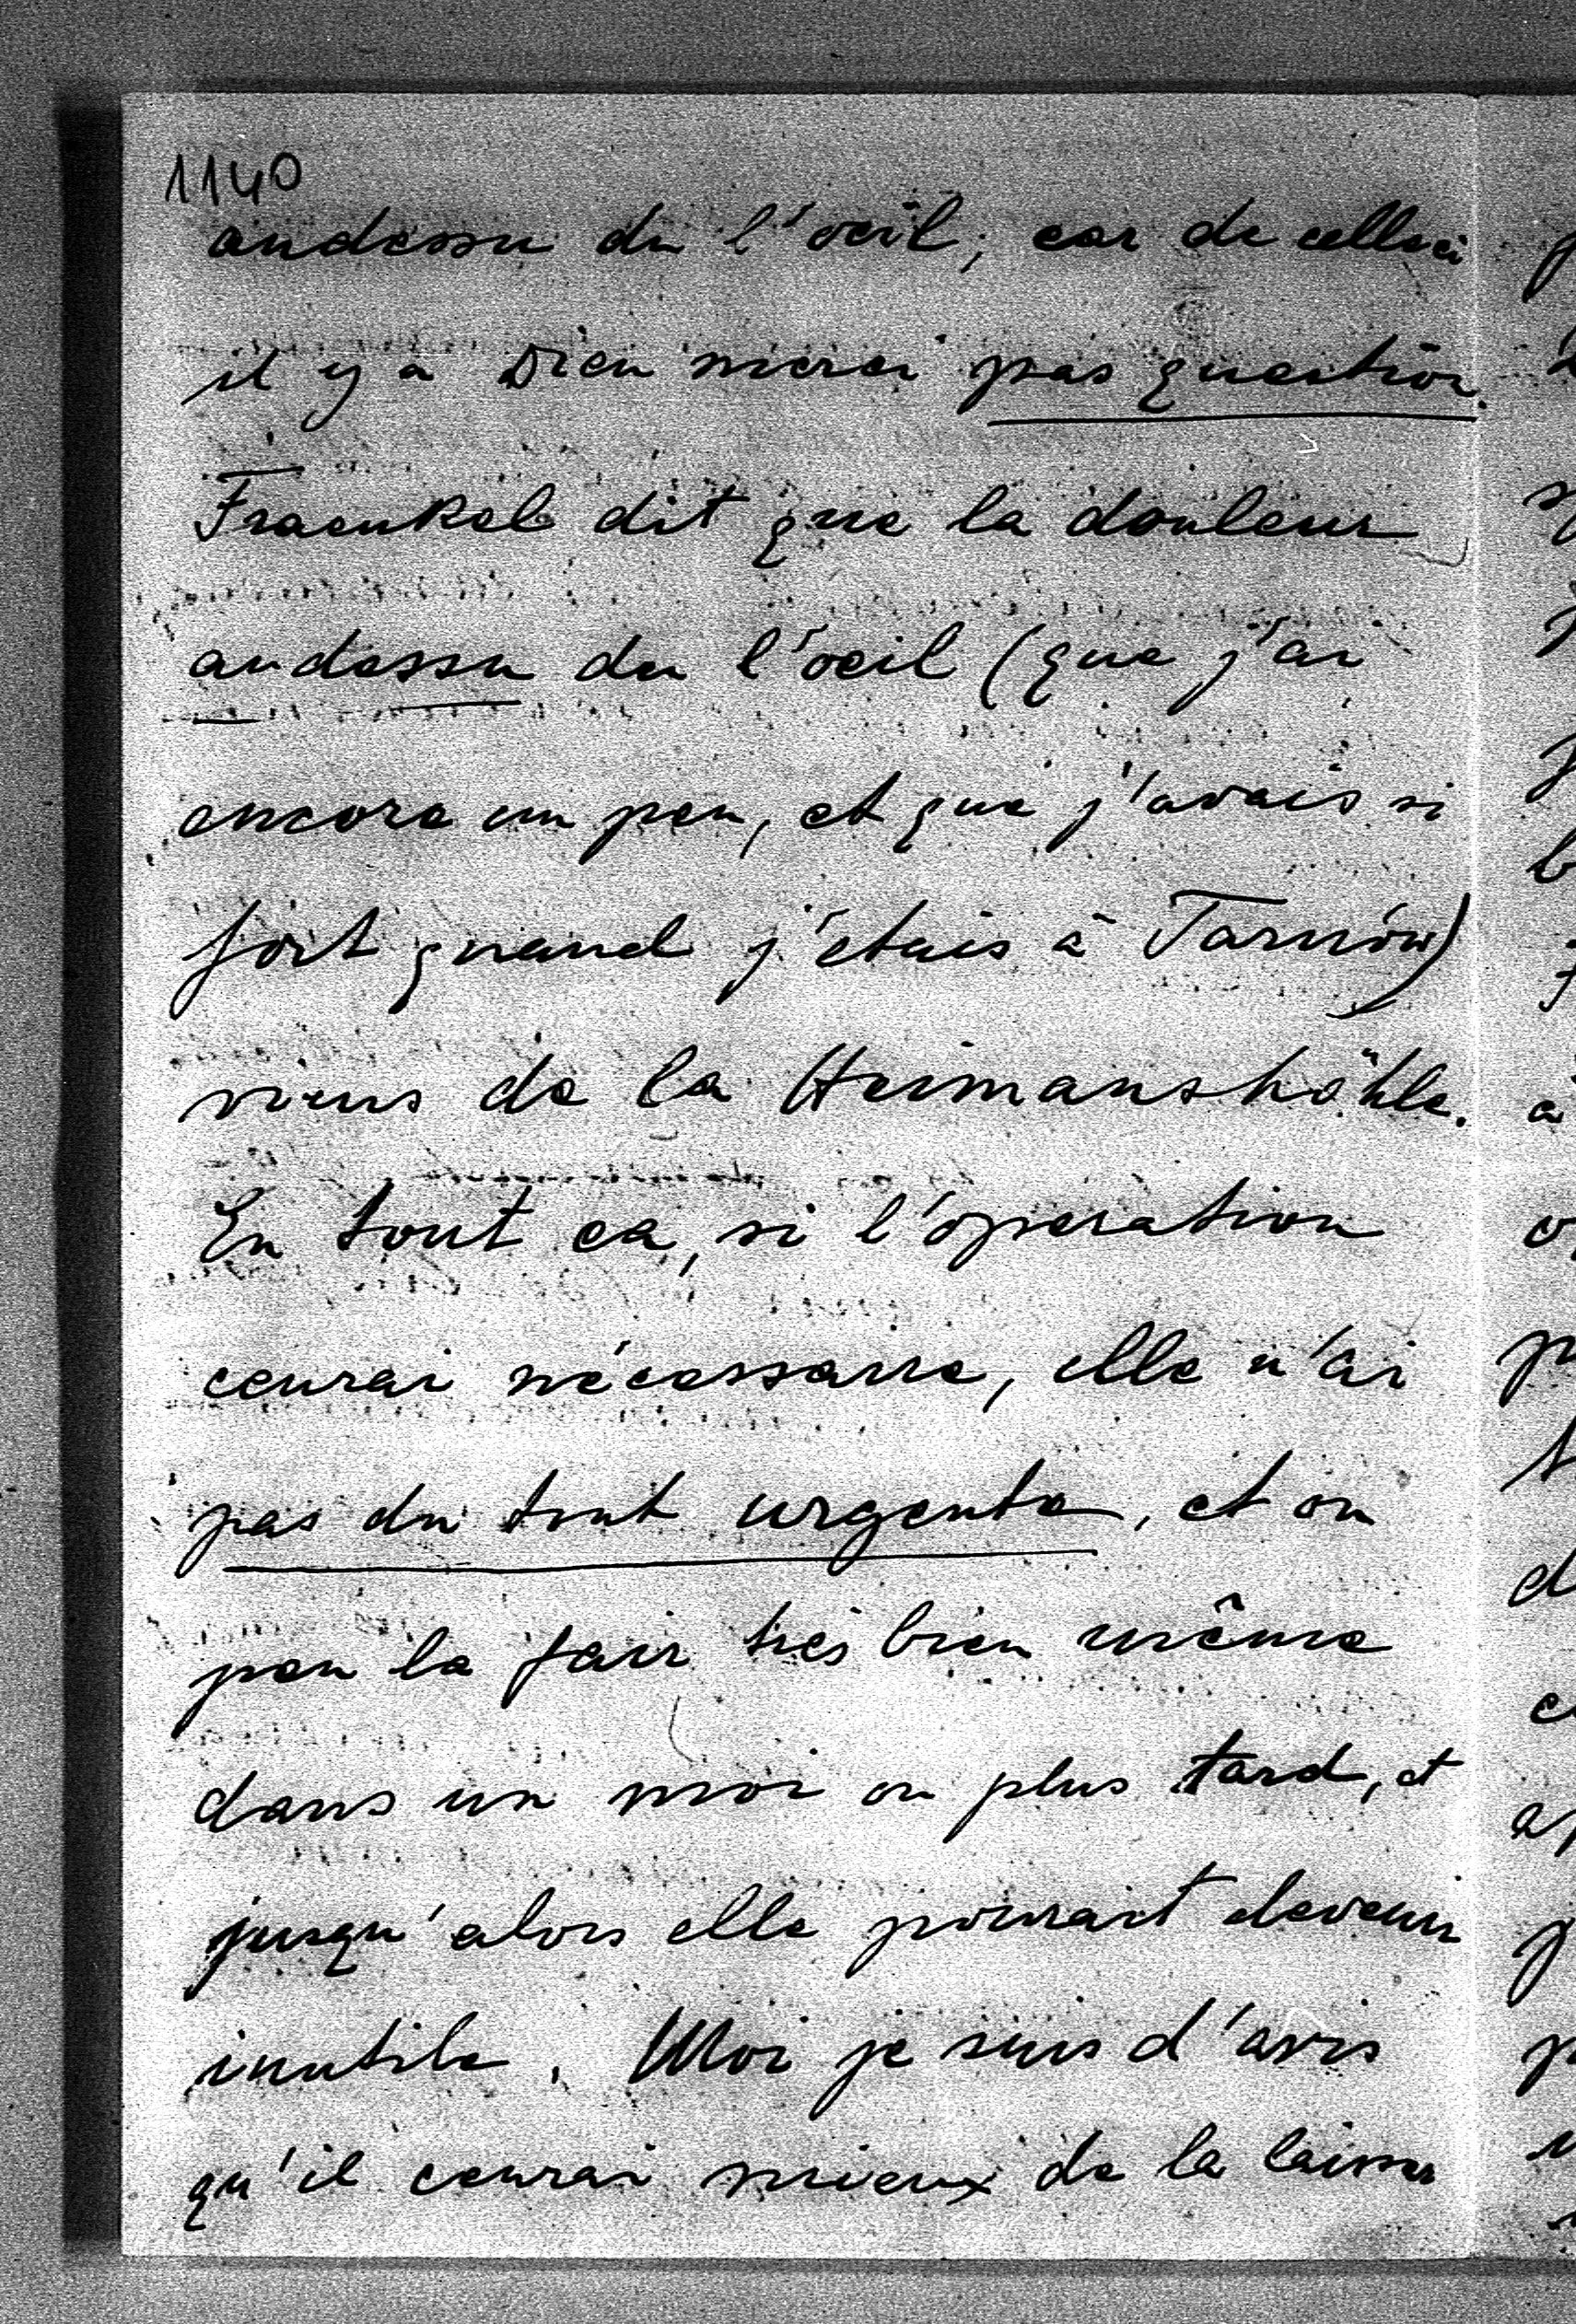 1140
audessu du l'oeil; car de cellsci
il y a Dieu merci pas question.
Fraenkel dit que la douleur
audessu du l'oeil (que j'ai
encore un peu, et que j'avais si
fort quand j'étais à Tarnów)
viens de la Heimanshöhle.
En tout ca, si l'operation
cerai nécessaire, elle n'ai
pas du tout urgente, et on
peu la fair très bien même
dans un moi ou plus tard, et
jusqu'alors elle pourait devenir
inutile. Moi je suis d'avis
qu'il cerai mieux de la laisser